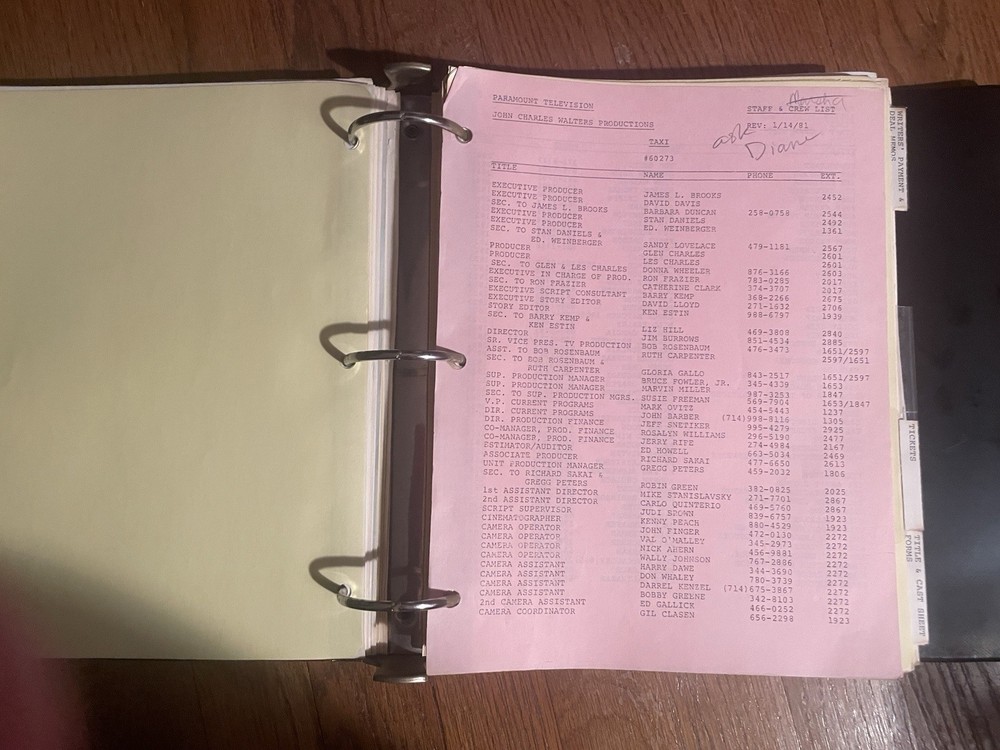 PARAMOUNT TELEVISION STAFF & CREW LIST
JOHN CHARLES WALTERS PRODUCTIONS REV: 1/14/81
ask Diane
TAXI
#60273
TITLE NAME PHONE EXT.
EXECUTIVE PRODUCER JAMES L. BROOKS 2452
EXECUTIVE PRODUCER DAVID DAVIS
SEC. TO JAMES L. BROOKS BARBARA DUNCAN 258-0758 2544
EXECUTIVE PRODUCER STAN DANIELS 2492
EXECUTIVE PRODUCER ED. WEINBERGER 1361
SEC. TO STAN DANIELS &
ED. WEINBERGER SANDY LOVELACE 479-1181 2567
PRODUCER GLEN CHARLES 2601
PRODUCER LES CHARLES 2601
SEC. TO GLEN & LES CHARLES DONNA WHEELER 876-3166 2603
EXECUTIVE IN CHARGE OF PROD. RON FRAZIER 783-0295 2017
SEC. TO RON FRAZIER CATHERINE CLARK 374-3707 2017
EXECUTIVE SCRIPT CONSULTANT BARRY KEMP 368-2266 2675
EXECUTIVE STORY EDITOR DAVID LLOYD 271-1832 2706
STORY EDITOR KEN ESTIN 988-6797 1939
SEC. TO BARRY KEMP &
KEN ESTIN LIZ HILL 469-3808 2840
DIRECTOR JIM BURROWS 851-4534 2885
SR. VICE PRES. TV PRODUCTION BOB ROSENBAUM 476-3473 1651/2597
ASST. TO BOB ROSENBAUM RUTH CARPENTER 2597/1651
SEC. TO BOB ROSENBAUM &
RUTH CARPENTER GLORIA GALLO 843-2517 1651/2597
SUP. PRODUCTION MANAGER BRUCE FOWLER, JR. 345-4339 1653
SUP. PRODUCTION MANAGER MARVIN MILLER 987-3253 1847
SEC. TO SUP. PRODUCTION MGRS. SUSIE FREEMAN 569-7904 1653/1847
V.P. CURRENT PROGRAMS MARK OVITZ 454-5443 1237
DIR. CURRENT PROGRAMS JOHN BARBER (714)998-8116 1305
DIR. PRODUCTION FINANCE JEFF SNETIKER 995-4279 2925
CO-MANAGER, PROD. FINANCE ROSALYN WILLIAMS 296-5190 2477
CO-MANAGER, PROD. FINANCE JERRY RIFE 274-4984 2167
ESTIMATOR/AUDITOR ED HOWELL 663-5034 2469
ASSOCIATE PRODUCER RICHARD SAKAI 477-6650 2613
UNIT PRODUCTION MANAGER GREGG PETERS 459-2032 1806
SEC. TO RICHARD SAKAI &
GREGG PETERS ROBIN GREEN 382-0825 2025
1st ASSISTANT DIRECTOR MIKE STANISLAVSKY 271-7701 2867
2nd ASSISTANT DIRECTOR CARLO QUINTERIO 469-5760 2867
SCRIPT SUPERVISOR JUDI BROWN 839-6757 1923
CINEMATOGRAPHER KENNY PEACH 880-4529 2272
CAMERA OPERATOR JOHN FINGER 472-0130 2272
CAMERA OPERATOR VAL O'MALLEY 345-2973 2272
CAMERA OPERATOR NICK AHERN 456-9881 2272
CAMERA OPERATOR WALLY JOHNSON 767-2886 2272
CAMERA ASSISTANT HARRY DAWE 344-3690 2272
CAMERA ASSISTANT DON WHALEY 780-3739 2272
CAMERA ASSISTANT DARREL KENZEL (714)675-3867 2272
CAMERA ASSISTANT BOBBY GREENE 342-8103 2272
2nd CAMERA ASSISTANT ED GALLICK 466-0252 2272
CAMERA COORDINATOR GIL CLASEN 656-2298 1923
WRITERS' PAYMENT &
DEAL MEMOS
TICKETS
TITLE & CAST SHEET
FORMS